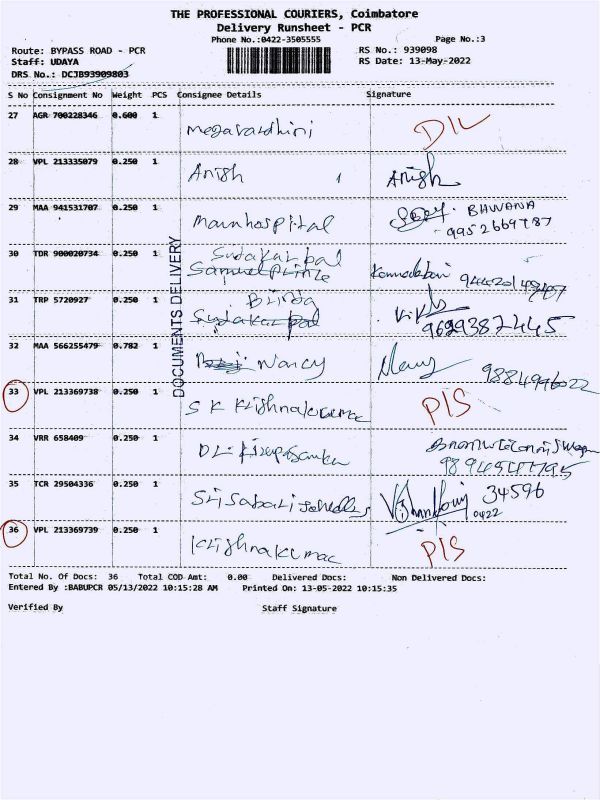 THE PROFESSIONAL COURIERS, Coimbatore
Delivery Runsheet - PCR
Phone No.:0422-3505555
Page No.:3
Route: BYPASS ROAD - PCR
RS No.: 939098
Staff: UDAYA
RS Date: 13-May-2022
DRS No.: DCJB93909803
S No Consignment No Weight PCS Consignee Details Signature
27 AGR 700228346 0.600 1
Megavardhini DIL
28 VPL 213335079 0.250 1
Anish 1 Anish
29 MAA 941531707 0.250 1
mainhospital BHWANA
9952669787
30 TDR 900020734 0.250 1
Sudakarpal
Samuel Prince
31 TRP 5720927 0.250 1
Brinda
Sudakarpal
9629387445
32 MAA 566255479 0.782 1
Nancy Nancy 9884996022
33 VPL 213369738 0.250 1
S K Krishnakumar PIS
34 VRR 658409 0.250 1
35 TCR 29504336 0.250 1
Sri Sabari 34596
0422
36 VPL 213369739 0.250 1
Krishnakumar PIS
DOCUMENTS DELIVERY
Total No. Of Docs: 36 Total COD Amt: 0.00 Delivered Docs: Non Delivered Docs:
Entered By :BABUPCR 05/13/2022 10:15:28 AM Printed On: 13-05-2022 10:15:35
Verified By Staff Signature